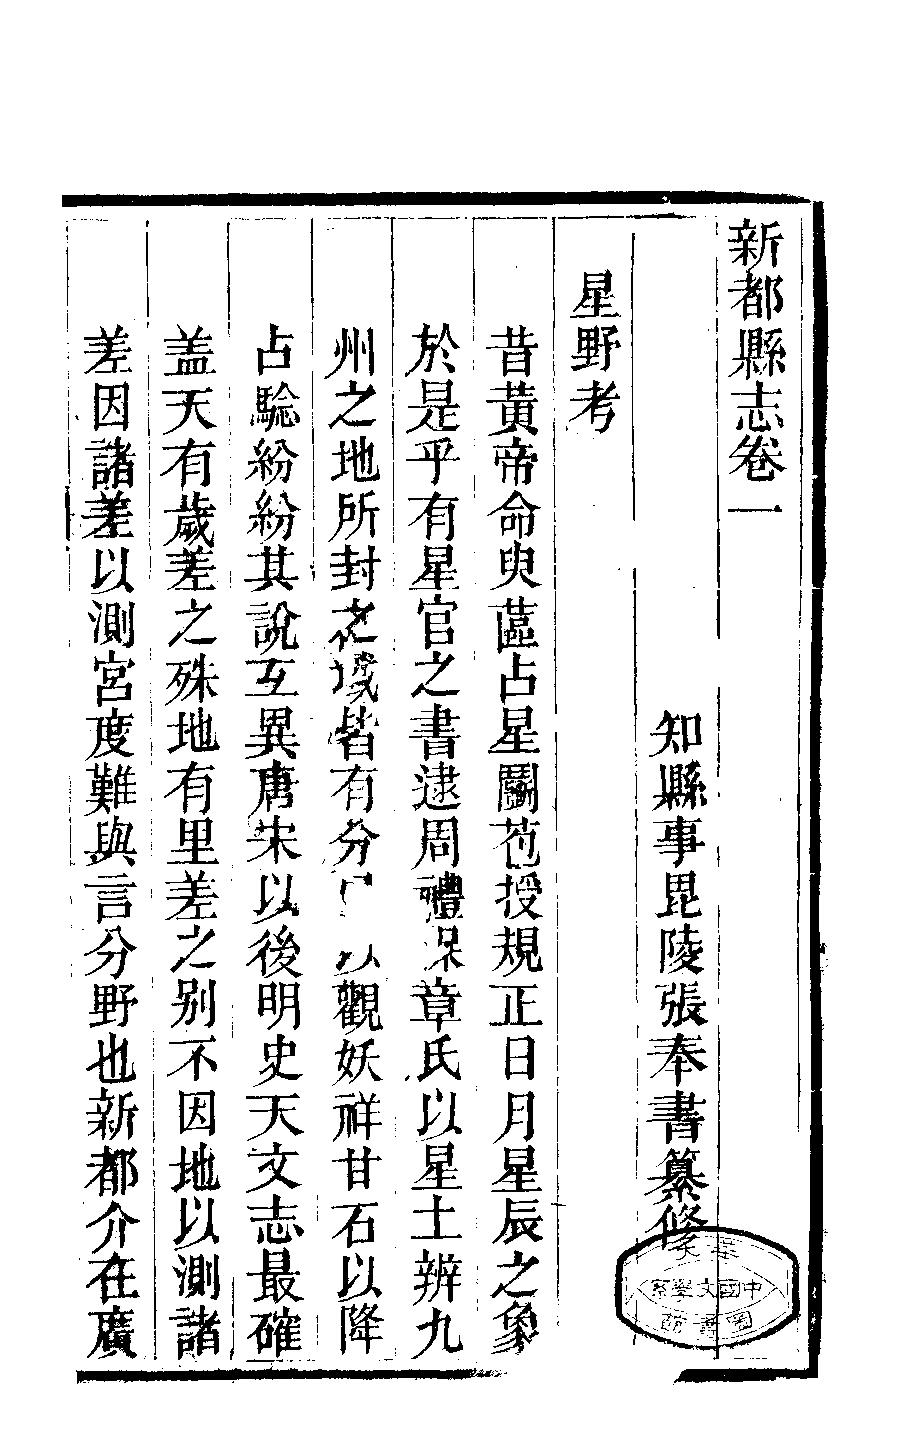 新都縣志卷一
知縣事毘陵張奉書纂修
星野考
昔黃帝命臾蓲占星鬭苞授規正日月星辰之象
於是乎有星官之書逮周禮保章氏以星土辨九
州之地所封之域皆有分以觀妖祥甘石以降
占騐紛紛其說互異唐宋以後明史天文志最確
盖天有歲差之殊地有里差之別不因地以測諸
差因諸差以測宮度難與言分野也新都介在廣
中國文學系